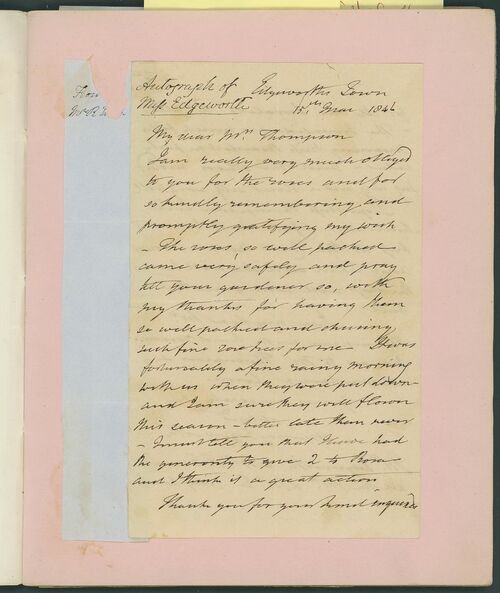 From
Autograph of
Miss Edgeworth
Edgeworths Town
15th Mar 1846
My dear Mrs Thompson
I am really very much obliged
to you for the roses and for
so kindly remembering and
promptly gratifying my wish
– The roses, so well packed
came very safely and pray
tell your gardener so, with
my thanks for having them
so well packed and chusing
such fine for me It was
fortunately a fine rainy morning
with us when they were put down
and I am sure they will flower
this season – better late than never
– I must tell you that I have had
the generosity to give 2 to Rosa
and I think is a great action
Thank you for your kind inquiries